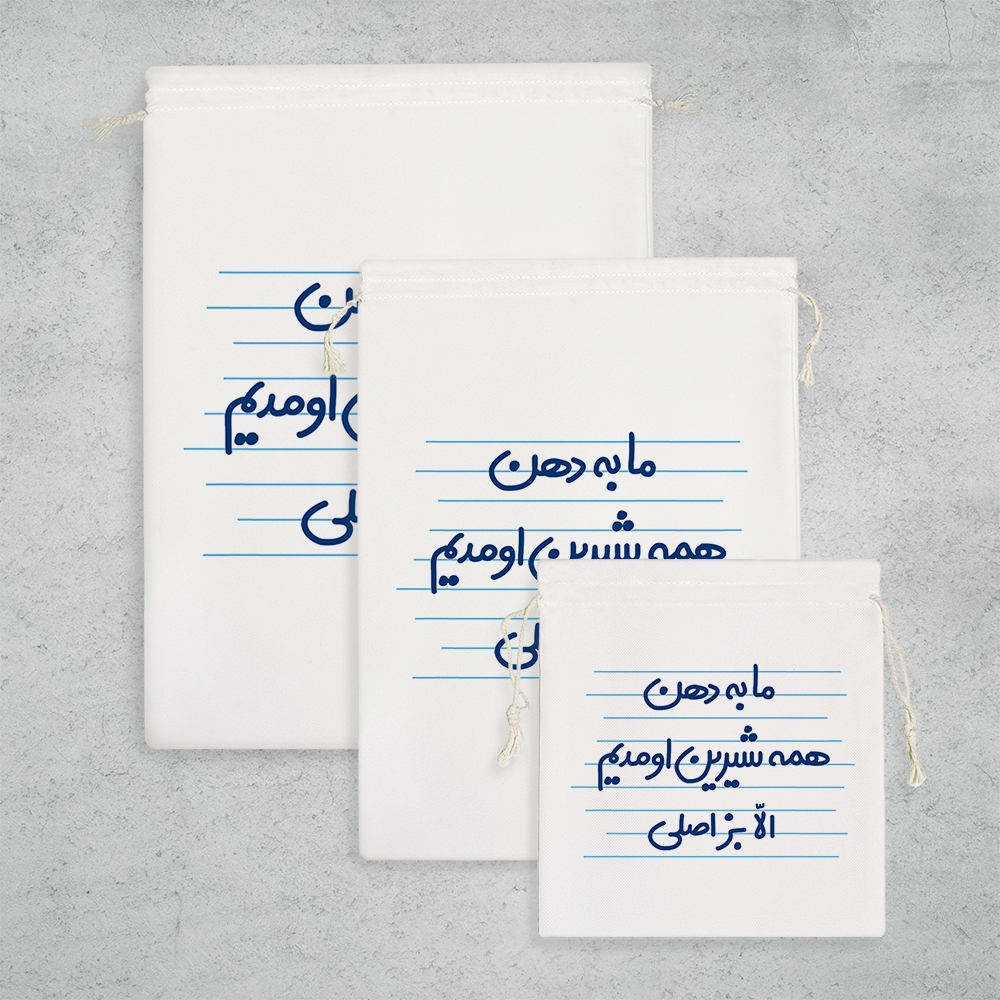 ن
اومدیم
لی
ما به دهن
همه شیرین اومدیم
لی
ما به دهن
همه شیرین اومدیم
الّا بز اصلی